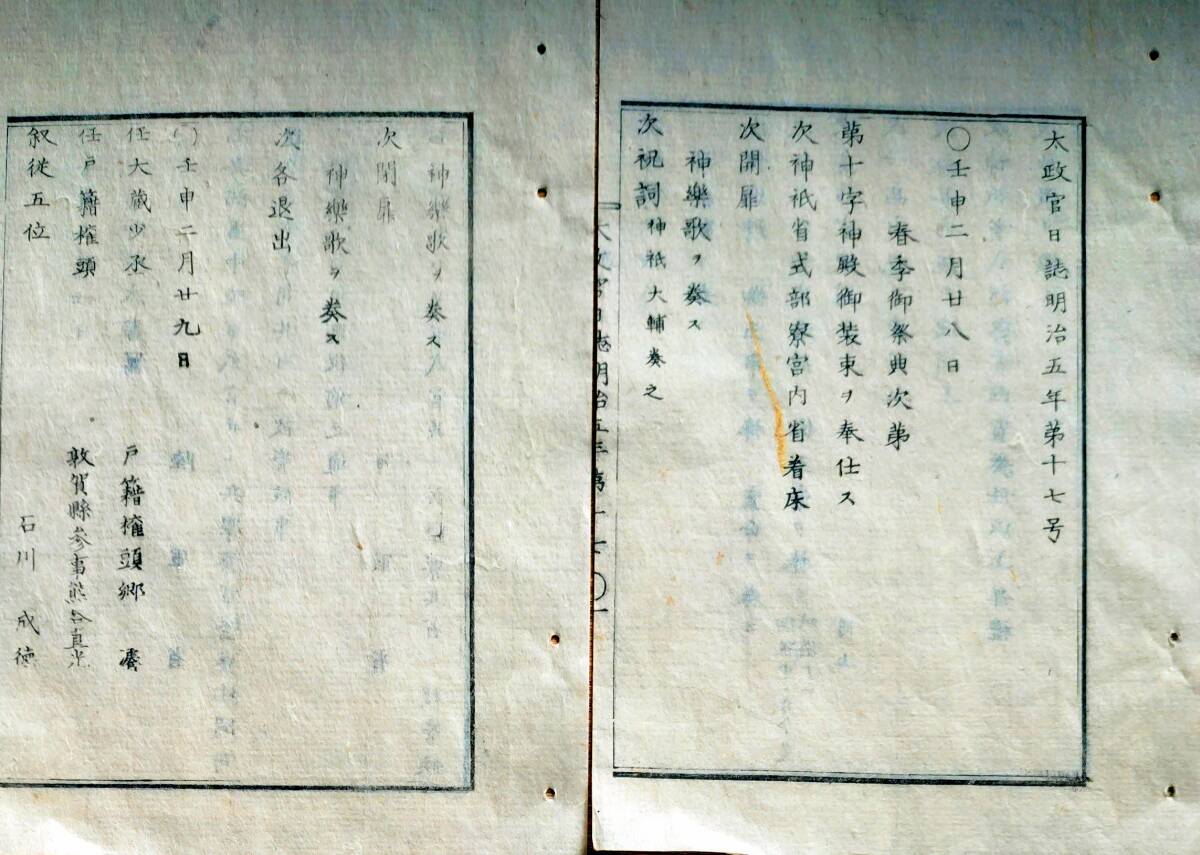 太政官日誌明治五年第十七号
〇壬申二月廿八日
春季御祭典次第
第十字神殿御装束ヲ奉仕ス
次神祇省式部寮宮内省着床
次開扉
神樂歌ヲ奏ス
次祝詞神祇大輔奏之
太政官日誌明治五年第十七〇一
神樂歌ヲ奏ス
次閉扉
神樂歌ヲ奏ス
次各退出
〇壬申二月廿九日
任大蔵少丞 戸籍権頭郷
任戸籍権頭 敦賀縣参事熊谷直光
叙從五位 石川成徳